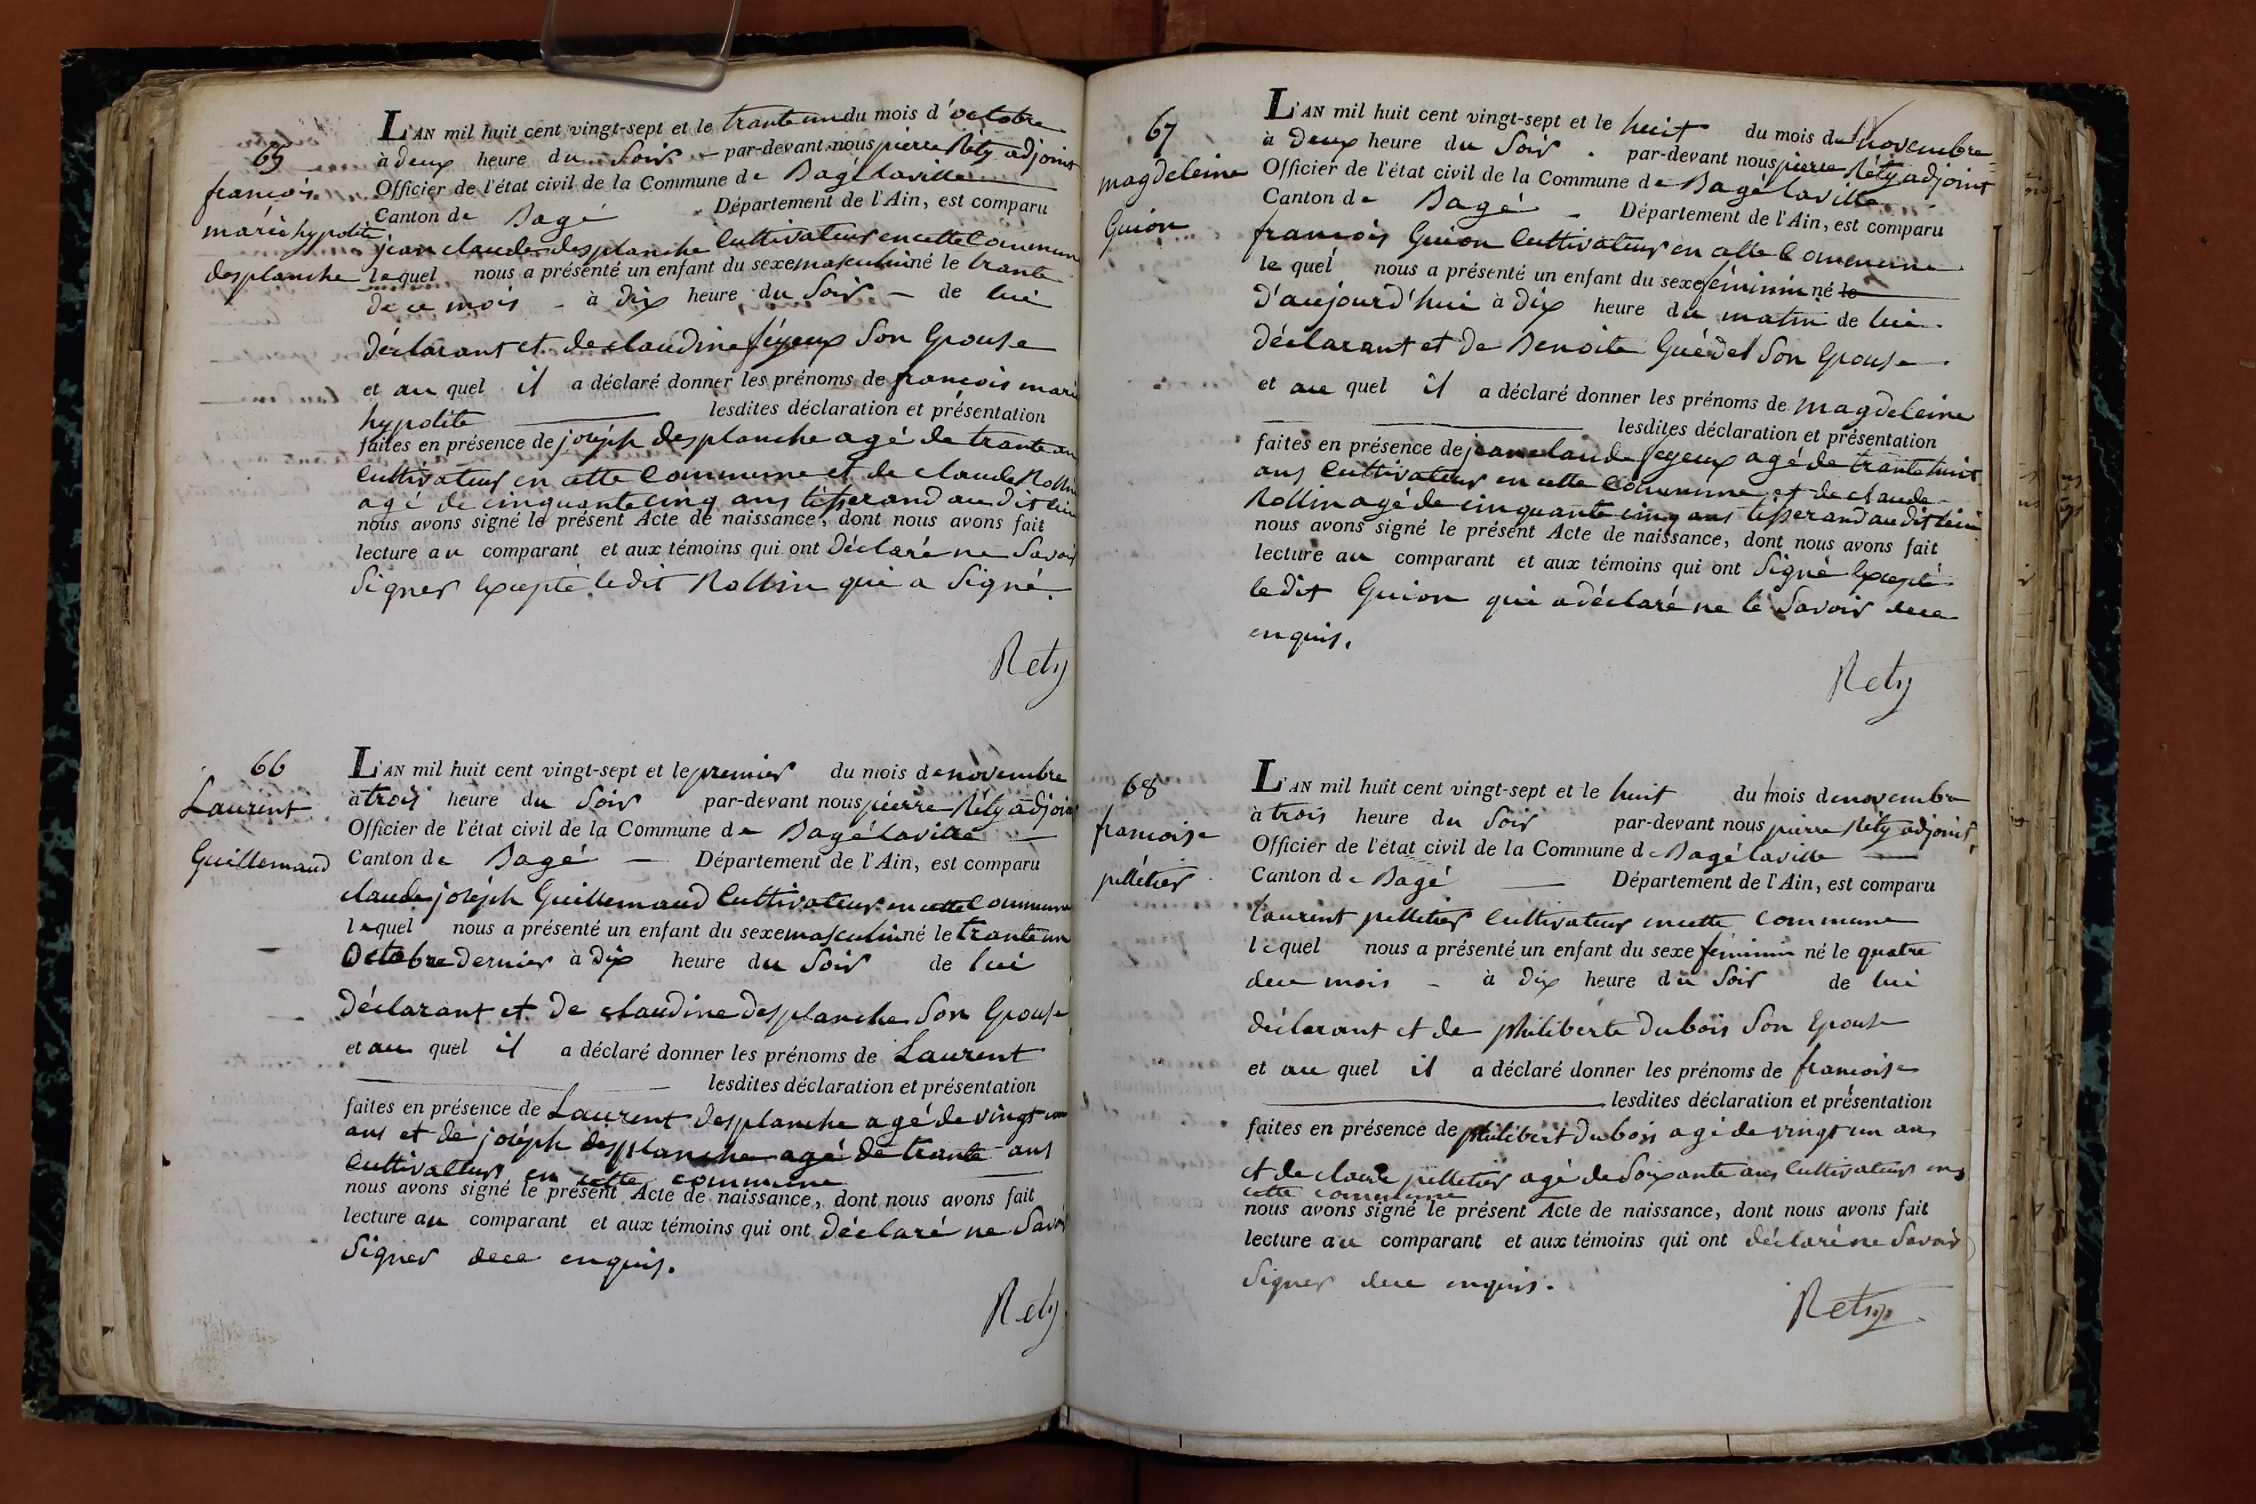 65
francois
marie hypolite
desplanche
L'AN mil huit cent vingt-sept et le trante un du mois d'octobre
à deux heure du Soir par-devant nous pierre Réty adjoint
Officier de l'état civil de la Commune de Bagé laville
Canton de Bagé Département de l'Ain, est comparu
jean claude desplanche Cultivateur en cette Commune
lequel nous a présenté un enfant du sexe masculin né le trante
de ce mois à dix heure du Soir de lui
déclarant et de claudine féyeux Son Epouse
et au quel il a déclaré donner les prénoms de francois marie
hypolite lesdites déclaration et présentation
faites en présence de joséph desplanche agé de trante ans
Cultivateur en cette Commune et de claude Rollin
agé de cinquante cinq ans tisserand au dit lieu
nous avons signé le présent Acte de naissance, dont nous avons fait
lecture au comparant et aux témoins qui ont déclaré ne Savoir
Signer Excepté ledit Rollin qui a Signé.
Rety
66
Laurent
Guillemaud
L'AN mil huit cent vingt-sept et le premier du mois de novembre
à trois heure du Soir par-devant nous pierre Réty adjoint
Officier de l'état civil de la Commune de Bagé laville
Canton de Bagé Département de l'Ain, est comparu
claude joséph Guillemaud Cultivateur en cette Commune
lequel nous a présenté un enfant du sexe masculin né le trante un
Octobre dernier à dix heure du Soir de lui
déclarant et de claudine desplanche Son Epouse
et au quel il a déclaré donner les prénoms de Laurent
lesdites déclaration et présentation
faites en présence de Laurent desplanche agé de vingt un
ans et de joséph desplanche agé de trante ans
Cultivateurs en cette commune
nous avons signé le présent Acte de naissance, dont nous avons fait
lecture au comparant et aux témoins qui ont déclaré ne Savoir
Signer de ce enquis.
Rety
67
magdeleine
Guion
L'AN mil huit cent vingt-sept et le huit du mois du Novembre
à deux heure du Soir par-devant nous pierre Réty adjoint
Officier de l'état civil de la Commune de Bagé laville
Canton de Bagé Département de l'Ain, est comparu
francois Guion Cultivateur en cette Commune
le quel nous a présenté un enfant du sexe féminin né le
d'aujourd'hui à dix heure du matin de lui
déclarant et de Benoite Guédel Son Epouse
et au quel il a déclaré donner les prénoms de magdeleine
lesdites déclaration et présentation
faites en présence de jean claude feyeux agé de trante huit
ans Cultivateur en cette Commune et de claude
Rollin agé de cinquante cinq ans tisserand au dit lieu
nous avons signé le présent Acte de naissance, dont nous avons fait
lecture au comparant et aux témoins qui ont Signé Excepté
ledit Guion qui a déclaré ne le Savoir de ce
enquis.
Rety
68
francoise
pelletier
L'AN mil huit cent vingt-sept et le huit du mois de novembre
à trois heure du Soir par-devant nous pierre Réty adjoint
Officier de l'état civil de la Commune de Bagé laville
Canton de Bagé Département de l'Ain, est comparu
laurent pelletier Cultivateur en cette Commune
lequel nous a présenté un enfant du sexe féminin né le quatre
de ce mois à dix heure du Soir de lui
déclarant et de philiberte Dubois Son Epouse
et au quel il a déclaré donner les prénoms de francoise
lesdites déclaration et présentation
faites en présence de philibert Dubois agé de vingt un ans
et de claude pelletier agé de Soixante ans Cultivateurs en
cette commune
nous avons signé le présent Acte de naissance, dont nous avons fait
lecture au comparant et aux témoins qui ont déclaré ne Savoir
Signer de ce enquis.
Rety